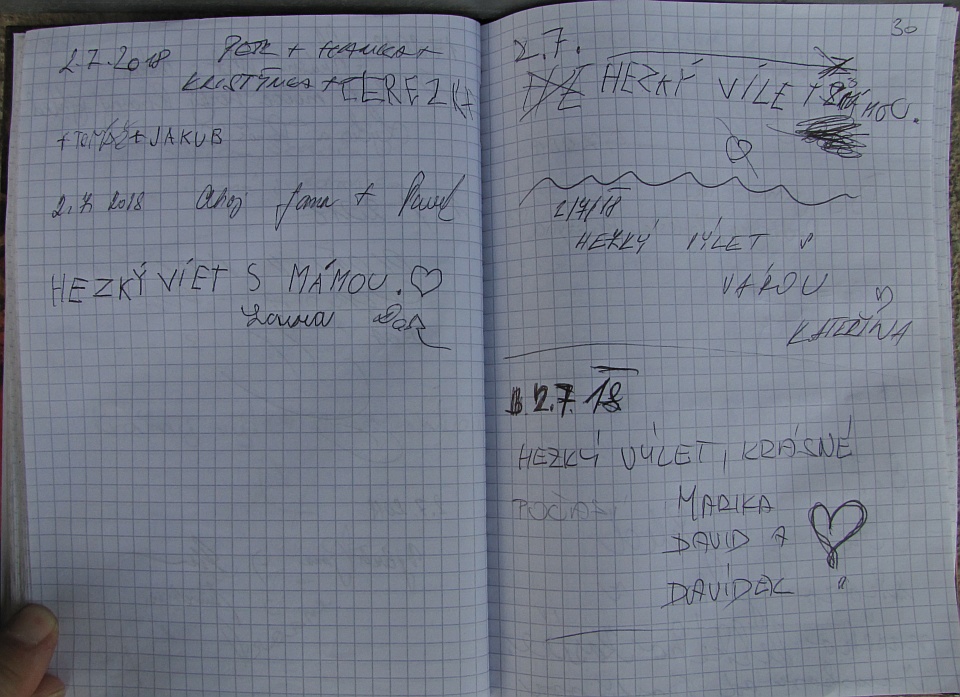 2.7.2018 PETR + HANKA +
KRISTÝNKA + TEREZKA
+ TOMÁŠ + JAKUB
2.7. 2018 Ahoj Jana + Pavel
HEZKÝ VÍET S MÁMOU.
30
2.7.
HEZKÝ VÍLET S MÁMOU.
2/7/18
HEZKÝ VÝLET
VÁROU
KATEŘINA
2.7. 18
HEZKÝ VÝLET, KRÁSNÉ
POČASÍ
MARIKA
DAVID A
DAVÍDEK